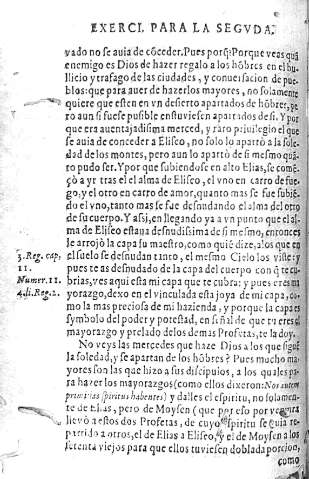 EXERCI. PARA LA SEGVDA.
vado no se auia de cõceder. Pues porq̃: Porque veas quã
enemigo es Dios de hazer regalo a los hõbres en el bu-
llicio y trafago de las ciudades, y conuersacion de pue-
blos: que para auer de hazerlos mayores, no solamente
quiere que esten en vn desierto apartados de hõbres, pe-
ro aun si fuese pusible estuviesen apartados de si. Y por
que era auentajadisima merced, y raro priuilegio el que
se auia de conceder a Eliseo, no solo lo apartò a la sole-
dad de los montes, pero aun lo apartò de si mesmo quã-
to pudo ser. Y por que subiendose en alto Elias, se comẽ-
çò a yr tras el el alma de Eliseo, el vno en carro de fue-
go, y el otro en carro de amor, quanto mas se fue subiẽ-
do el vno, tanto mas se fue desnudando el alma del otro
de su cuerpo. Y asi, en llegando ya a vn punto que el al-
ma de Eliseo estaua desnudisima de si mesmo, entonces
le arrojò la capa su maestro, como quiẽ dize, a los que en
3. Reg. cap.
el suelo se desnudan tanto, el mesmo Cielo los viste: y
11.
pues te as desnudado de la capa del cuerpo con q̃ te cu-
Numer. 11.
brias, ves aqui esta mi capa que te cubra: y pues eres ma
4. li. Reg. 2.
yorazgo, dexo en el vinculada esta joya de mi capa, co-
mo la mas preciosa de mi hazienda, y porque la capa es
symbolo del poder y potestad, en señal de que tu eres el
mayorazgo y prelado de los demas Profetas, te la doy.
No veys las mercedes que haze Dios a los que sigue
la soledad, y se apartan de los hõbres? Pues mucho ma-
yores son las que hizo a sus discipulos, a los quales pa-
ra hazer los mayorazgos (como ellos dixeron: Nos autem
primitias spiritus habentes) y dalles el espiritu, no solamen-
te de Elias, pero de Moysen (que por eso por
lleuò a estos dos Profetas, de cuyo espiritu se auia re-
partido a otros, el de Elias a Eliseo, y el de Moysen a los
setenta viejos para que ellos tuviesen doblada porcion,
como